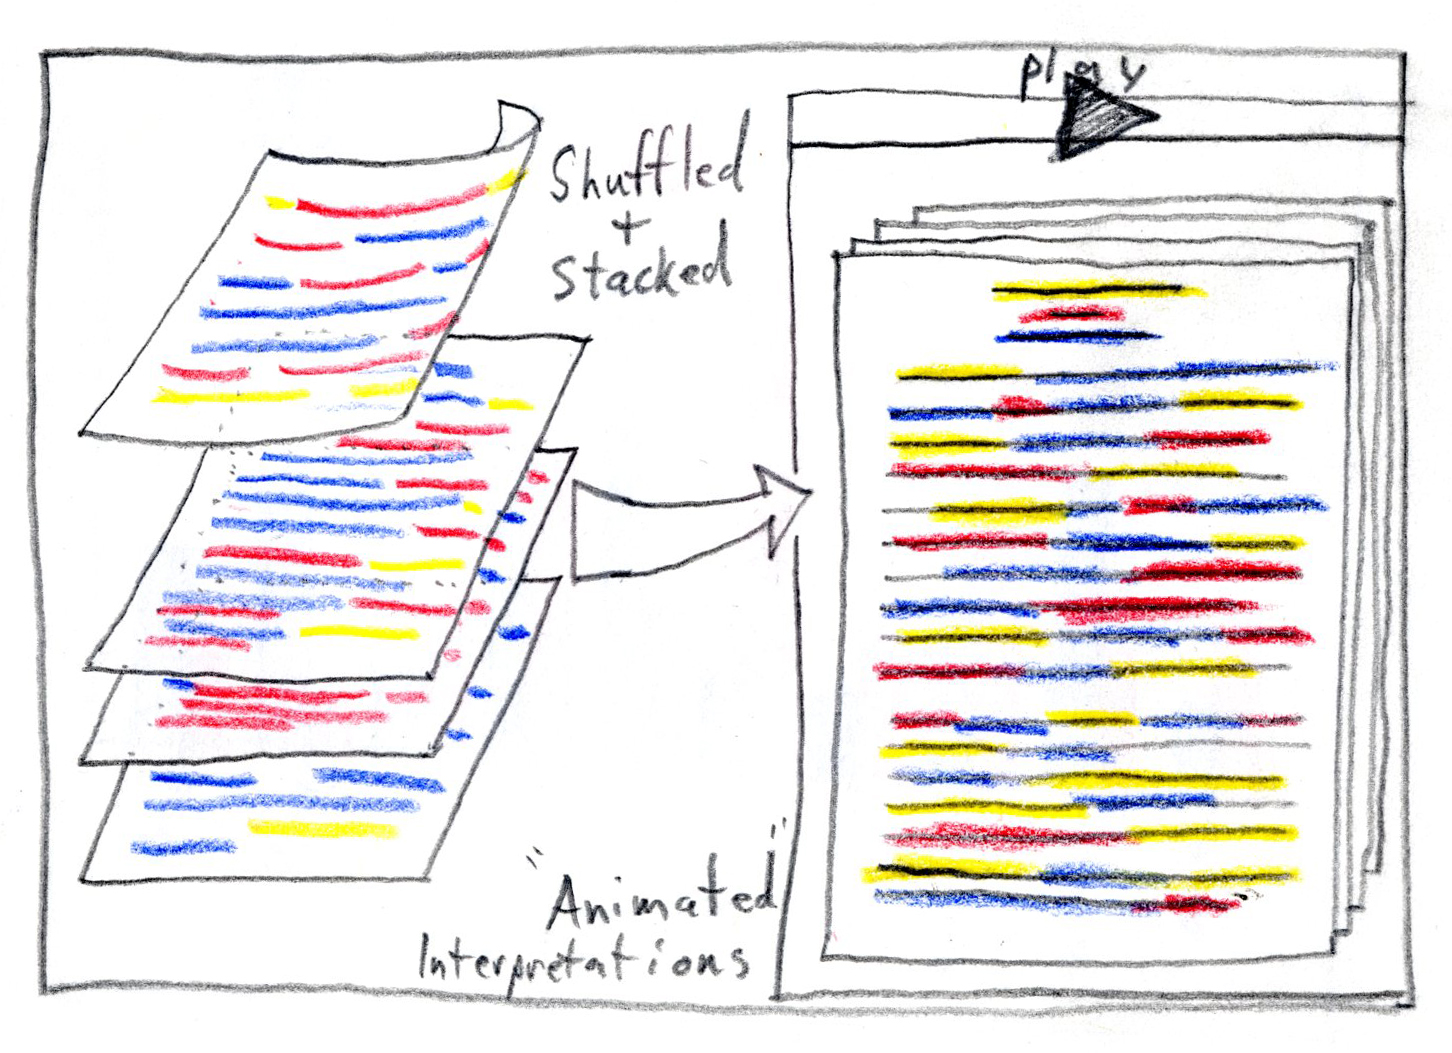 play
Shuffled
+
Stacked
"Animated"
Interpretations